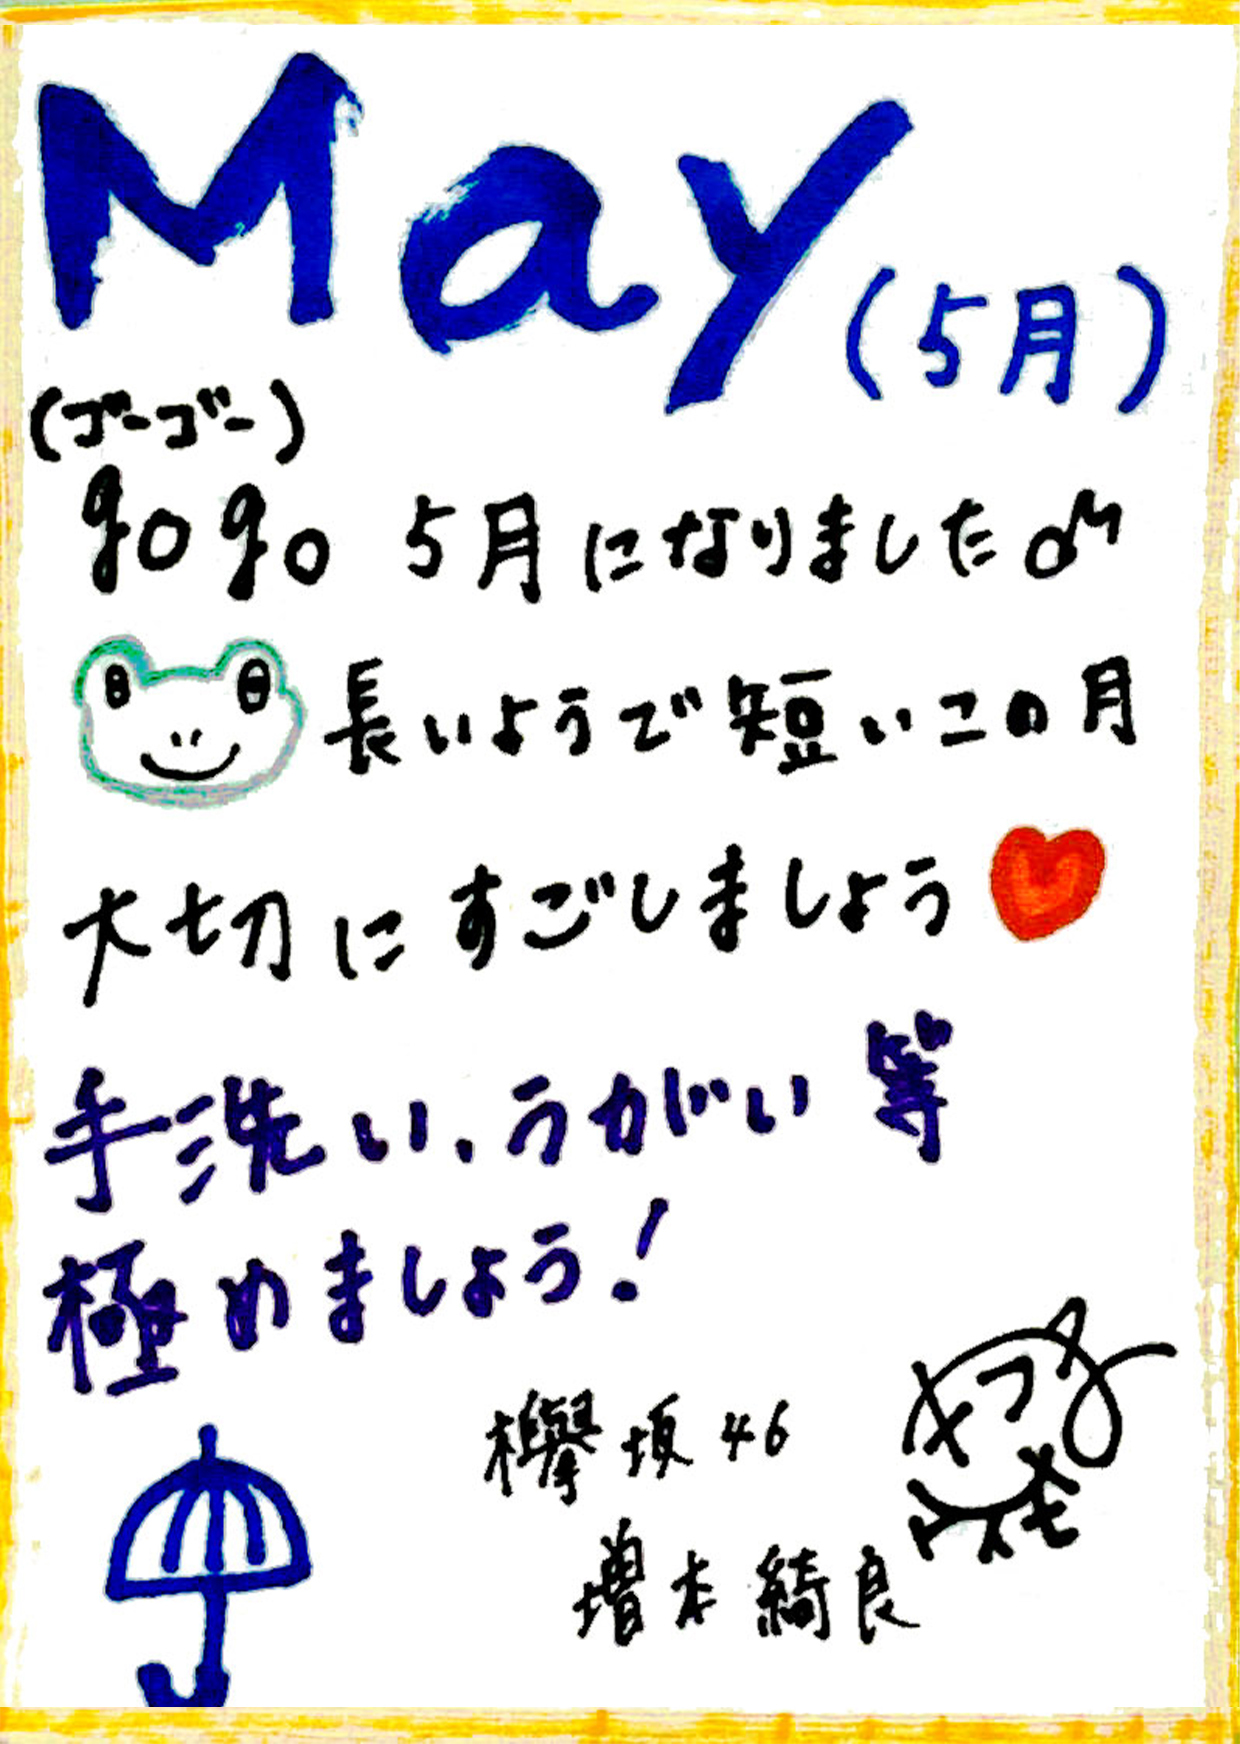 May (5月)
(ゴーゴー)
gogo 5月になりました
長いようで短いこの月
大切にすごしましょう
手洗い、うがい等
極めましょう!
欅坂46
増本綺良